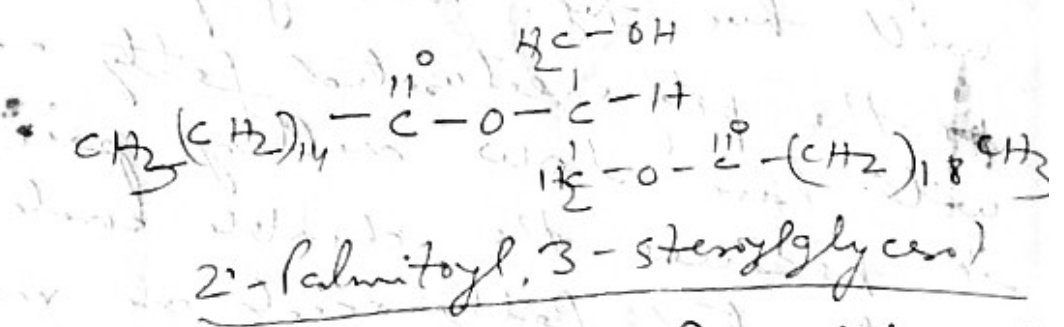 H2C-OH
O
CH3(CH2)14-C-O-C-H
O
H2C-O-C-(CH2)18CH3
2-Palmitoyl, 3-steroylglycerol